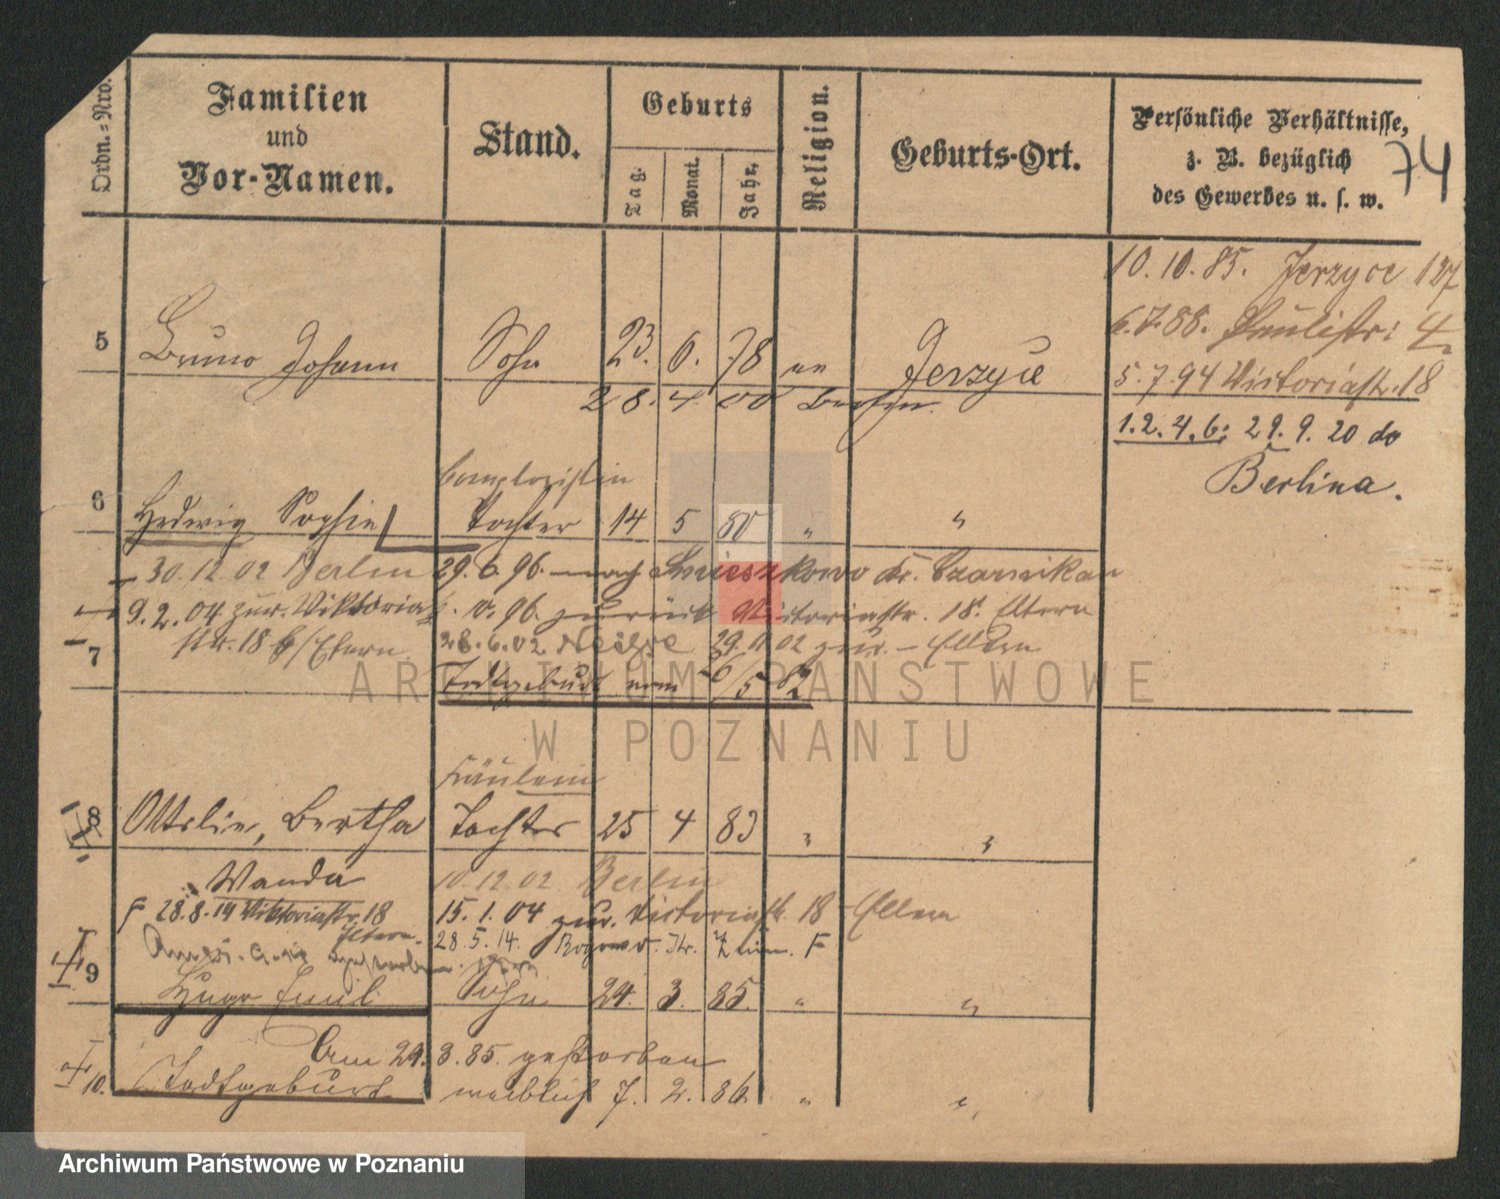 Ordn.-Nro.
Familien
und
Vor-Namen.
Stand.
Geburts
Tag.
Monat.
Jahr.
Religion.
Geburts-Ort.
Persönliche Verhältnisse,
z. B. bezüglich
des Gewerbes u. s. w.
74
10.10.85. Jerzyce 127
6.7.88. Paulistr: 4
5.7.94 Victoriastr. 18
1.2.4.6: 29.9.20 do
Berlina.
5 Bruno Johann Sohn 23. 6. 78 ev Jerzyce
28. 4. 00 Berlin.
Comptoristin
6 Hedwig Sophie Tochter 14 5 80 " "
30.12.02 Berlin 29.6.96. nach kowo Kr. Czarnikau
9.2.04 zur. Viktoria 96. zurück Victoriastr. 18. Eltern
str. 18 b/Eltern 28.6.02. 02 zur. - Eltern
7 Todtgeburt vom 26/5 82
Fräulein
8 Ottilie, Bertha Tochter 25 4 83 " "
Wanda 10.12.02 Berlin
F 28.8.14 Viktoriastr. 18 15.1.04 zur. Victoriastr. 18 Eltern
Eltern. 28.5.14. Kr. F
9 Hugo Emil Sohn 24. 3. 85. " "
Am 29.3.85. gestorben
10. Todtgeburt weiblich 7. 2. 86. " "
ARCHIWUM PAŃSTWOWE
W POZNANIU
Archiwum Państwowe w Poznaniu